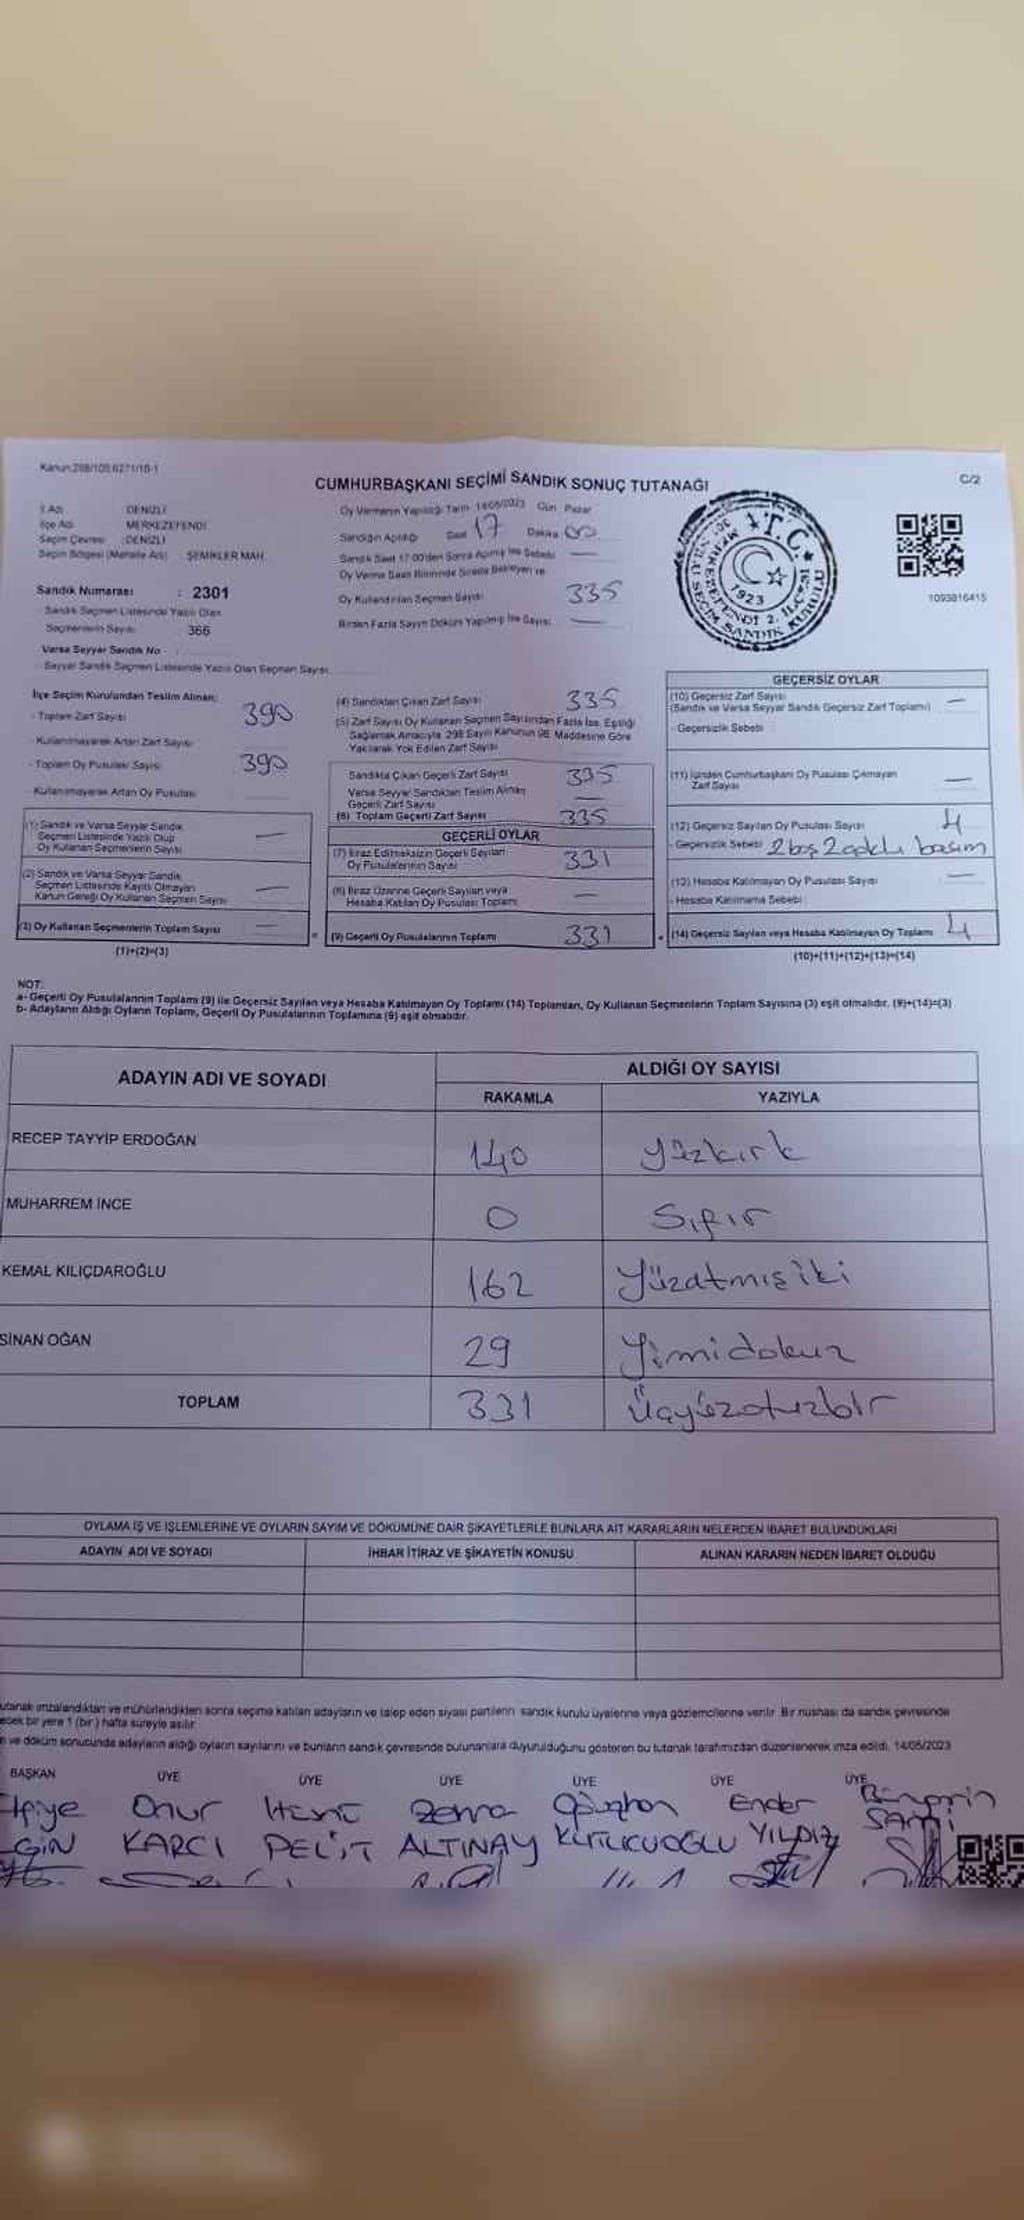 Kanun:298/105;6271/10-1
C/2
CUMHURBAŞKANI SEÇİMİ SANDIK SONUÇ TUTANAĞI
İl Adı DENİZLİ
İlçe Adı MERKEZEFENDİ
Seçim Çevresi :DENİZLİ
Seçim Bölgesi (Mahalle Adı) ŞEMİKLER MAH.
Sandık Numarası : 2301
Sandık Seçmen Listesinde Yazılı Olan
Seçmenlerin Sayısı 366
Varsa Seyyar Sandık No
Seyyar Sandık Seçmen Listesinde Yazılı Olan Seçmen Sayısı
Oy Vermenin Yapıldığı Tarih 14/05/2023 Gün Pazar
Sandığın Açıldığı Saat 17 Dakika 00
Sandık Saat 17:00'den Sonra Açılmış İse Sebebi —
Oy Verme Saati Bitiminde Sırada Bekleyen ve
Oy Kullandırılan Seçmen Sayısı 335
Birden Fazla Sayım Döküm Yapılmış İse Sayısı —
T.C.
MERKEZEFENDİ 2. İLÇESİ
SEÇİM SANDIK KURULU
1923
1093816415
İlçe Seçim Kurulundan Teslim Alınan;
- Toplam Zarf Sayısı 390
- Kullanılmayarak Artan Zarf Sayısı
- Toplam Oy Pusulası Sayısı 390
- Kullanılmayarak Artan Oy Pusulası
(1) Sandık ve Varsa Seyyar Sandık
Seçmen Listesinde Yazılı Olup
Oy Kullanan Seçmenlerin Sayısı —
(2) Sandık ve Varsa Seyyar Sandık
Seçmen Listesinde Kayıtlı Olmayan
Kanun Gereği Oy Kullanan Seçmen Sayısı —
(3) Oy Kullanan Seçmenlerin Toplam Sayısı —
(1)+(2)=(3)
(4) Sandıktan Çıkan Zarf Sayısı 335
(5) Zarf Sayısı Oy Kullanan Seçmen Sayısından Fazla İse, Eşitliği
Sağlamak Amacıyla, 298 Sayılı Kanunun 98. Maddesine Göre
Yakılarak Yok Edilen Zarf Sayısı
Sandıkta Çıkan Geçerli Zarf Sayısı 335
Varsa Seyyar Sandıktan Teslim Alınan
Geçerli Zarf Sayısı —
(6) Toplam Geçerli Zarf Sayısı 335
GEÇERLİ OYLAR
(7) İtiraz Edilmeksizin Geçerli Sayılan
Oy Pusulalarının Sayısı 331
(8) İtiraz Üzerine Geçerli Sayılan veya
Hesaba Katılan Oy Pusulası Toplamı —
(9) Geçerli Oy Pusulalarının Toplamı 331
GEÇERSİZ OYLAR
(10) Geçersiz Zarf Sayısı
(Sandık ve Varsa Seyyar Sandık Geçersiz Zarf Toplamı) —
- Geçersizlik Sebebi
(11) İçinden Cumhurbaşkanı Oy Pusulası Çıkmayan
Zarf Sayısı —
(12) Geçersiz Sayılan Oy Pusulası Sayısı 4
- Geçersizlik Sebebi 2 boş 2 çoklu basım
(13) Hesaba Katılmayan Oy Pusulası Sayısı —
- Hesaba Katılmama Sebebi
(14) Geçersiz Sayılan veya Hesaba Katılmayan Oy Toplamı 4
(10)+(11)+(12)+(13)=(14)
NOT:
a- Geçerli Oy Pusulalarının Toplamı (9) ile Geçersiz Sayılan veya Hesaba Katılmayan Oy Toplamı (14) Toplamları, Oy Kullanan Seçmenlerin Toplam Sayısına (3) eşit olmalıdır. (9)+(14)=(3)
b- Adayların Aldığı Oyların Toplamı, Geçerli Oy Pusulalarının Toplamına (9) eşit olmalıdır.
ADAYIN ADI VE SOYADI
ALDIĞI OY SAYISI
RAKAMLA YAZIYLA
RECEP TAYYİP ERDOĞAN 140 yüzkırk
MUHARREM İNCE 0 Sıfır
KEMAL KILIÇDAROĞLU 162 yüzatmışiki
SİNAN OĞAN 29 yirmidokuz
TOPLAM 331 üçyüzotuzbir
OYLAMA İŞ VE İŞLEMLERİNE VE OYLARIN SAYIM VE DÖKÜMÜNE DAİR ŞİKAYETLERLE BUNLARA AİT KARARLARIN NELERDEN İBARET BULUNDUKLARI
ADAYIN ADI VE SOYADI İHBAR İTİRAZ VE ŞİKAYETİN KONUSU ALINAN KARARIN NEDEN İBARET OLDUĞU
utanak imzalandıktan ve mühürlendikten sonra seçime katılan adayların ve talep eden siyasi partilerin sandık kurulu üyelerine veya gözlemcilerine verilir. Bir nüshası da sandık çevresinde
ecek bir yere 1 (bir) hafta süreyle asılır.
ve döküm sonucunda adayların aldığı oyların sayılarını ve bunların sandık çevresinde bulunanlara duyurulduğunu gösteren bu tutanak tarafımızdan düzenlenerek imza edildi. 14/05/2023
BAŞKAN ÜYE ÜYE ÜYE ÜYE ÜYE ÜYE
Onur Zehra Oğuzhan Ender
GIN KARCI PELİT ALTINAY KUTLUCUOĞLU YILDIZ